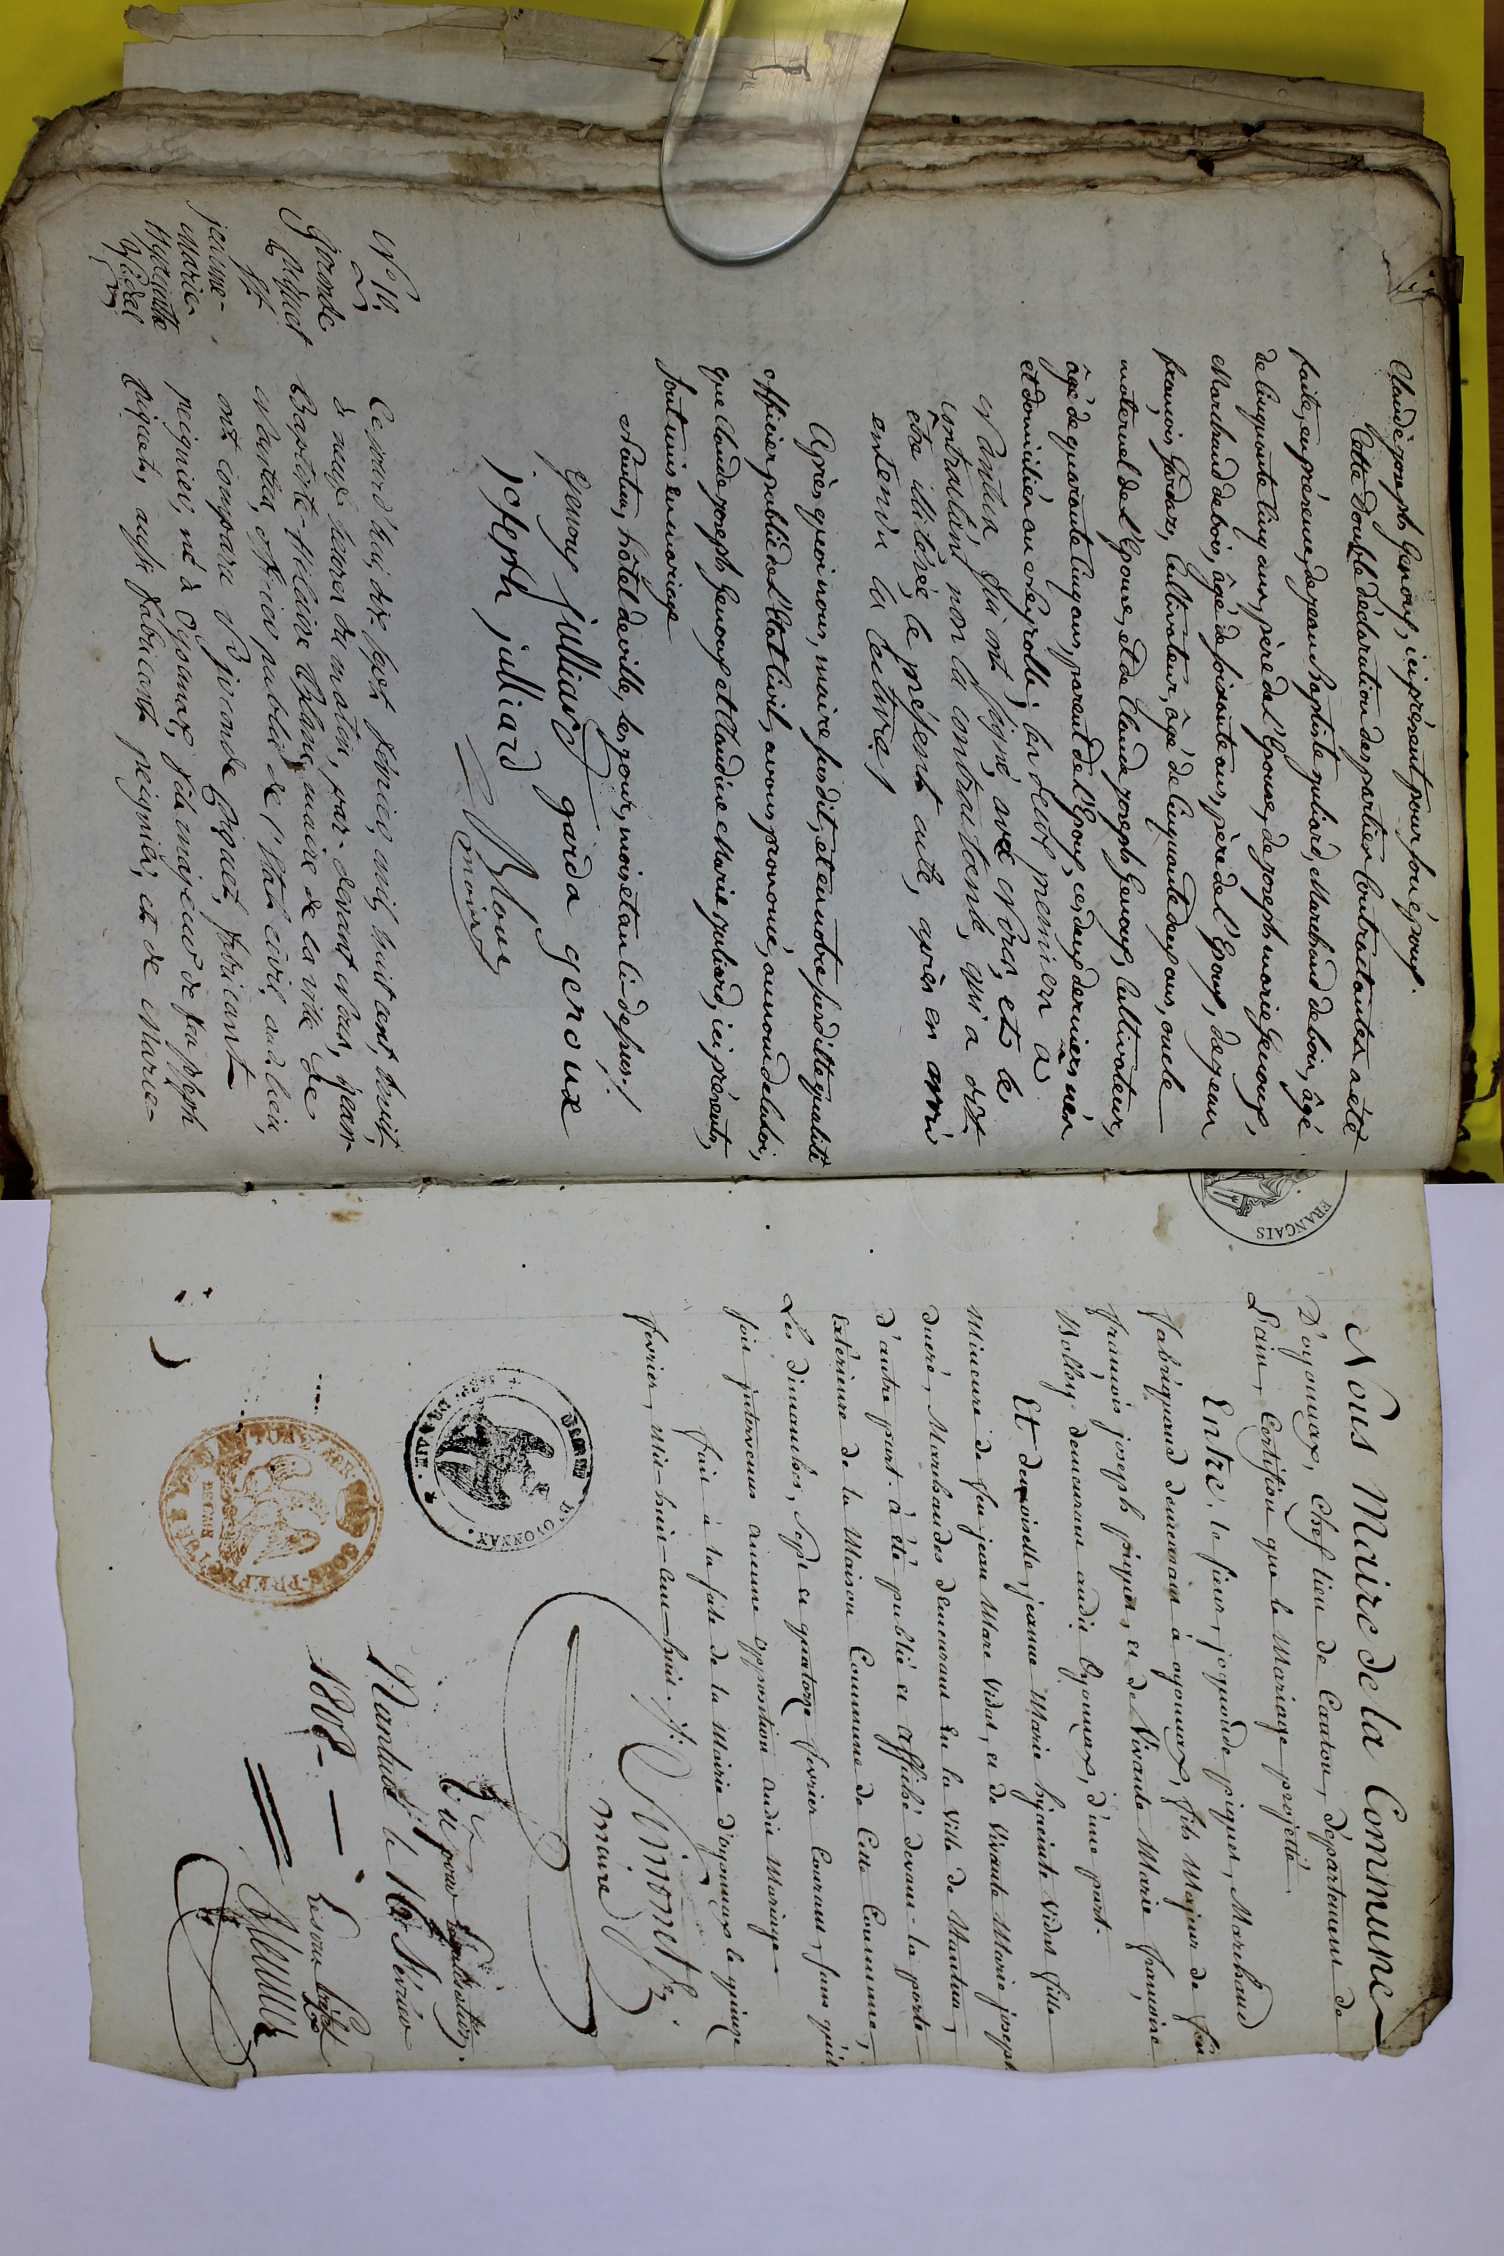 Claude joseph Genoux, ici présent pour son époux.
Cette double déclaration des parties Contractantes a été
faite, en présence, de jean baptiste juliard, Marchand de bois, âgé
de Cinquante Cinq ans, père de l'Epouse, de joseph marie Genoux,
Marchand de bois, âgé de soixante ans, père de l'Epoux, de jean
françois Gardaz, Cultivateur, âgé de Cinquante deux ans, oncle
maternel de l'Epouse, et de Claude joseph Genoux, Cultivateur,
âgé de quarante Cinq ans, parent de l'Epoux, ces deux derniers nés
et domiciliés au Neyrolles; les deux premiers à
Nantua qui ont signé, avec Nous, et le
contractant, non la contractante, qui a dit
être illitérée, le présent acte, après en avoir
entendu la lecture/
Après quoi nous, maire susdit, et en notre susditte qualité
officier public de l'Etat Civil, avons prononcé, au nom de la loi,
que Claude joseph Genoux et Claudine Marie juliard, ici présents,
sont unis en mariage
Nantua, hôtel de ville, les jour, mois et an ci-dessus./.
genoux julliard garda genoux
joseph julliard
Blanc
maire
N° 14
Joconde
piquet
et
jeanne-
Marie-
Hyacinthe
Vidal
Cejourd'hui, dix sept février, mil, huit cent, huit,
à neuf heures du matin, par devant Nous, jean-
Baptiste-Hilaire Blanc, maire de la ville de
Nantua, officier public de l'état civil audit lieu,
ont comparu Sr joconde piquet, fabricant
peignier, né à Oyonnax, fils majeur de feu joseph
piquet, aussi fabricant peignier, et de Marie-
FRANÇAIS
Nous Maire de la Commune
D'oyonnax, Chef lieu de Canton, département de
L'ain, Certifions que le Mariage projetté.
Entre, le sieur, joquonde piquet, Marchand
fabriquand demeurant à oyonnax, fils Majeur de feu
françois joseph piquet, et de Vivante Marie françoise
Bolley demeurant audit Oyonnax, d'une part.
Et demoiselle, jeanne Marie hyacinte Vidal fille
Mineure de feu jean Marc Vidal, et de Vivante Marie joseph
ducré, Marchandes demeurant en la Ville de Nantua,
d'autre part. à été publié et affiché devant la porte
Extérieure de la Maison Commune de Cette Commune,
Les dimanches, sept et quatorze fevrier Courant, sans qu'il
soit intervenus aucune opposition audit Mariage
fait à la salle de la Mairie d'oyonnax le quinze
fevrier, Mil-huit-Cent-huit./.
maire
MAIRIE D'OYONNAX
SOUS-PREFECTURE
Vu pour Legalisation.
Nantua le 16 Février
1808 —